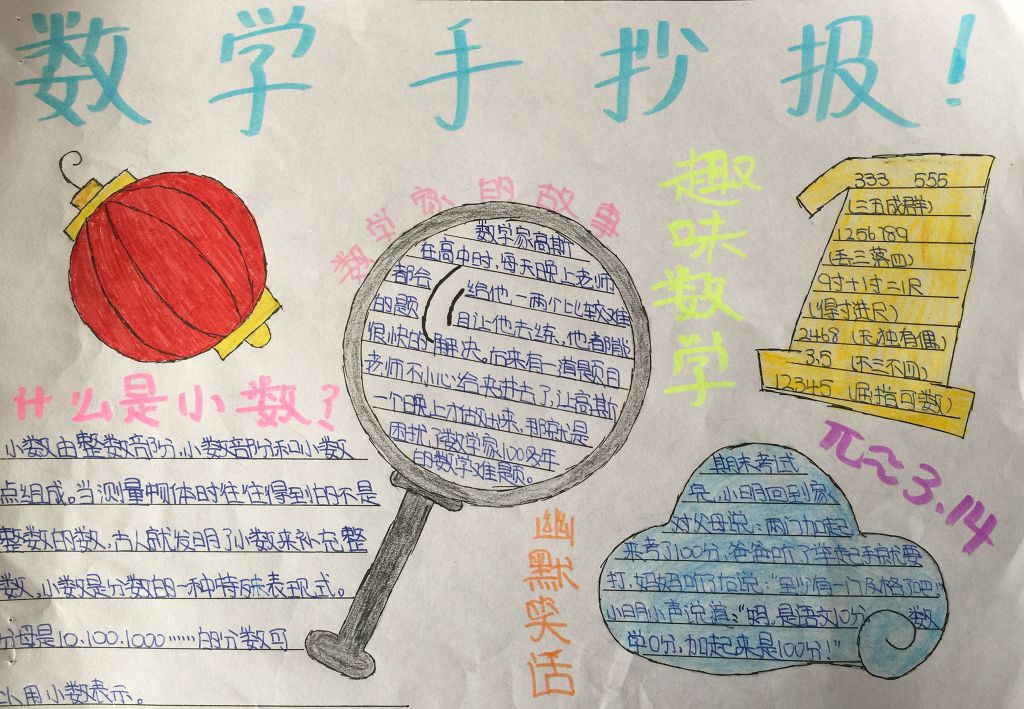 数学手抄报！
数学家的故事
数学家高斯
在高中时,每天晚上老师
都会给他,一两个比较难
的题目让他去练,他都能
很快的解决。后来有一道题目
老师不小心给夹进去了,让高斯
一个晚上才做出来,那就是
困扰了数学家100多年
的数学难题。
趣味数学
333 555
(三五成群)
1256789
(丢三落四)
9寸+1寸=1尺
(得寸进尺)
2468 (无独有偶)
3.5 (不三不四)
12345 (屈指可数)
什么是小数?
小数由整数部分,小数部份和小数
点组成。当测量物体时往往得到的不是
整数的数,古人就发明了小数来补充整
数,小数是分数的一种特殊表现式。
分母是10.100.1000……的分数可
以用小数表示。
π≈3.14
幽默笑话
期末考试
完,小明回到家
对父母说:两门加起
来考了100分,爸爸听了举起手就要
打,妈妈听了忙说:“至少有一门及格了吧!”
小明小声说道:“妈,是语文10分 数
学0分,加起来是100分!”